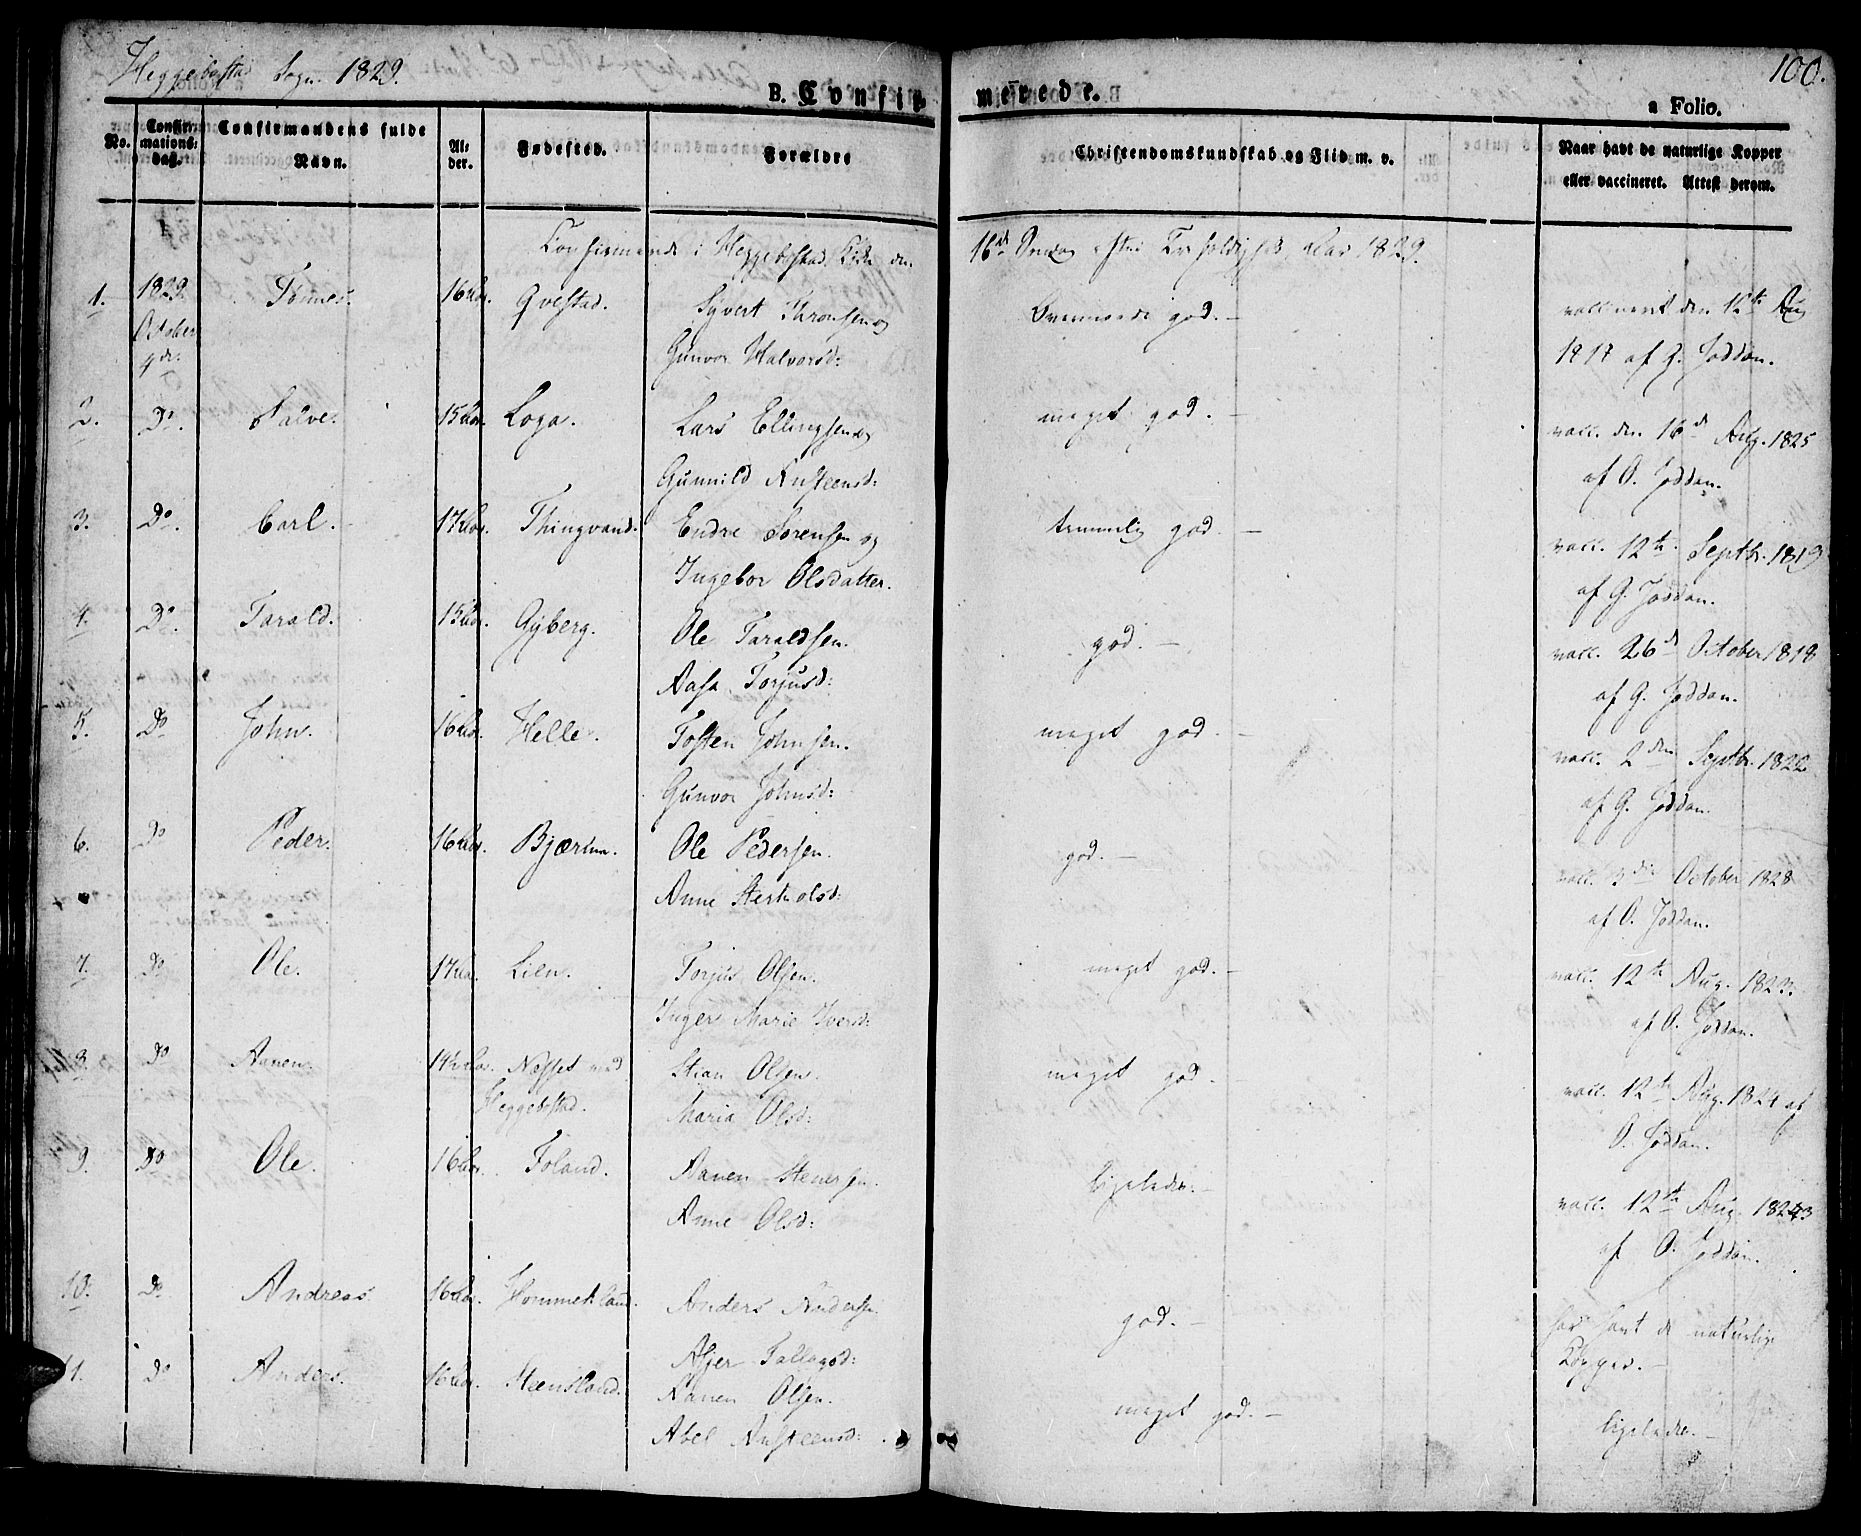 Heggebostad Sogn. 1829.
100.
B. Confir=
merede.
a Folio.
No.
Confir=
mations=
dag.
Confirmandens fulde
Navn.
Al=
der.
Fødested.
Forældre
Christendomskundskab og Flid m. v.
Naar havt de naturlige Kopper
eller vaccineret. Attest derom.
Confirmerede i Heggebostad Kirke den 16de Søndag efter Trefoldighed Aar 1829.
1. 1829. Tønnes. 16 Aar. Qvestad. Syvert Thronsen og
October
4de. Gunvor Halvorsd:
god. –
vaccineret den 12te Aug
1817 af G. Joddan.
2. Do. Salve. 15 Aar. Loga. Lars Ellingsen og meget god. –
Gunnild Austeensd:
vacc. den 16de Aug. 1825
af O. Joddan.
3. Do. Carl. 17 Aar. Thingvand. Endre Sørensen og temmelig god. –
Ingebor Olsdatter.
vacc. 12te Septbr. 1819
af G. Joddan.
4. Do. Tarald. 15 Aar. Gyberg. Ole Taraldsen. god. –
Aasa Torjusd:
vacc. 26de October 1818
af G. Joddan.
5. Do John. 16 Aar. Helle. Tosten Johnsen. meget god. –
Gunvor Johnsd:
vacc. 2den Septbr. 1822
af G. Joddan.
6. Do Peder. 16 Aar. Ole Pedersen. god. –
Anne
vacc. 3die October 1828
af O. Joddan.
7. Do Ole. 17 Aar. Lien. Torjus Olsen. meget god. –
Inger Marie Iversd:
vacc. 12te Aug. 1823.
af O. Joddan.
8. Do Aanen. Nesset ved Stian Olsen. meget god. –
Heggebostad. Maria Olsd:
vacc. 12te Aug. 1824 af
O. Joddan.
9. Do Ole. 16 Aar. Foland. Aanen Stenersen. ligeledes. –
Anne Olsd:
vacc. 12te Aug.
af O. Joddan.
10. Do Andreas 16 Aar. Hommekland. Anders Andersen god. –
Asjer
har havt de naturlige
Kopper. –
11. Do Anders. 16 Aar. Steensland. Aanen Olsen. meget god. –
Abel Austeensd:
ligeledes. –